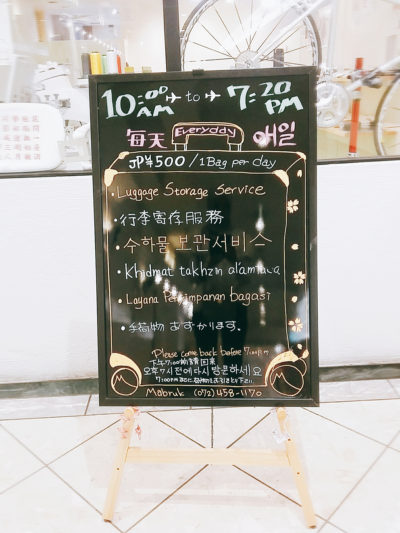 10:00 AM → to → 7:20 PM
每天 Everyday 매일
JP¥500 / 1Bag per day
・Luggage Storage Service
・行李寄存服務
・수하물 보관서비스
・Khidmat takhzin al'amtiea
・Layana Penyimpanan bagasi
・手荷物 あずかります。
Please come back before 7:00PM
下午7:00前請回来
오후 7시전에 다시 방문하세요
7:00PM までに
Mabruk (072) 458-1170